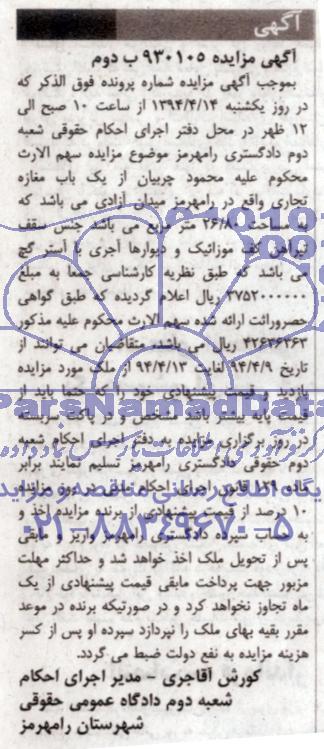 آگهی
آگهی مزایده ۹۳۰۱۰۵ ب دوم
بموجب آگهی مزایده شماره پرونده فوق الذکر که
در روز یکشنبه ۱۳۹۴/۴/۱۴ از ساعت ۱۰ صبح الی
۱۲ ظهر در محل دفتر اجرای احکام حقوقی شعبه
دوم دادگستری رامهرمز موضوع مزایده سهم الارث
محکوم علیه محمود چربیان از یک باب مغازه
تجاری واقع در رامهرمز میدان آزادی می باشد که
به مساحت متر مربع می باشد جنس سقف
تیرآهن کف موزائیک و دیوارها آجری با آستر گچ
می باشد که طبق نظریه کارشناسی جمعا به مبلغ
۳۷۵۲۰۰۰۰۰۰ ریال اعلام گردیده که طبق گواهی
حصروراثت ارائه شده سهم الارث محکوم علیه مذکور
۴۲۶۳۶۳۶۳ ریال می باشد، متقاضیان می توانند از
تاریخ ۹۴/۴/۹ لغایت ۹۴/۴/۱۳ از ملک مورد مزایده
بازدید و قیمت پیشنهادی خود را که حتما باید از
قیمت پایه بیشتر باشد مشخص و در پاکت سربسته
در روز برگزاری مزایده به دفتر اجرای احکام شعبه
دوم حقوقی دادگستری رامهرمز تسلیم نمایند برابر
ماده ۱۲۹ قانون اجرای احکام مدنی در روز مزایده
۱۰ درصد از قیمت پیشنهادی از برنده مزایده اخذ و
به حساب سپرده دادگستری رامهرمز واریز و مابقی
پس از تحویل ملک اخذ خواهد شد و حداکثر مهلت
مزبور جهت پرداخت مابقی قیمت پیشنهادی از یک
ماه تجاوز نخواهد کرد و در صورتیکه برنده در موعد
مقرر بقیه بهای ملک را نپردازد سپرده او پس از کسر
هزینه مزایده به نفع دولت ضبط می گردد.
کورش آقاجری - مدیر اجرای احکام
شعبه دوم دادگاه عمومی حقوقی
شهرستان رامهرمز
ParsNamadData
مرکز فرآوری اطلاعات پارس نماد داده
پایگاه اطلاع رسانی مناقصه و مزایده
۰۲۱-۸۸۳۴۹۶۷۰-۵